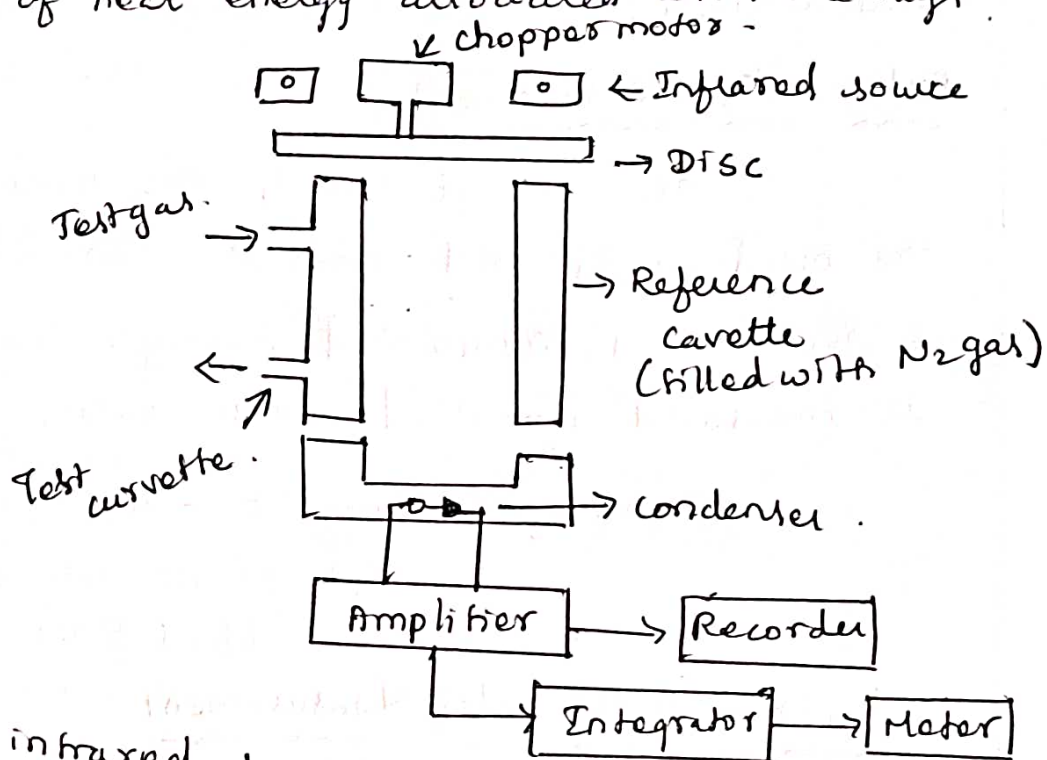 of heat energy
chopper motor -
← Infrared source
→ Disc
Test gas.
→ Reference
cavette
(filled with N2 gas)
Test
curvette.
→ condenser.
Amplifier
Recorder
Integrator
Meter
infrared